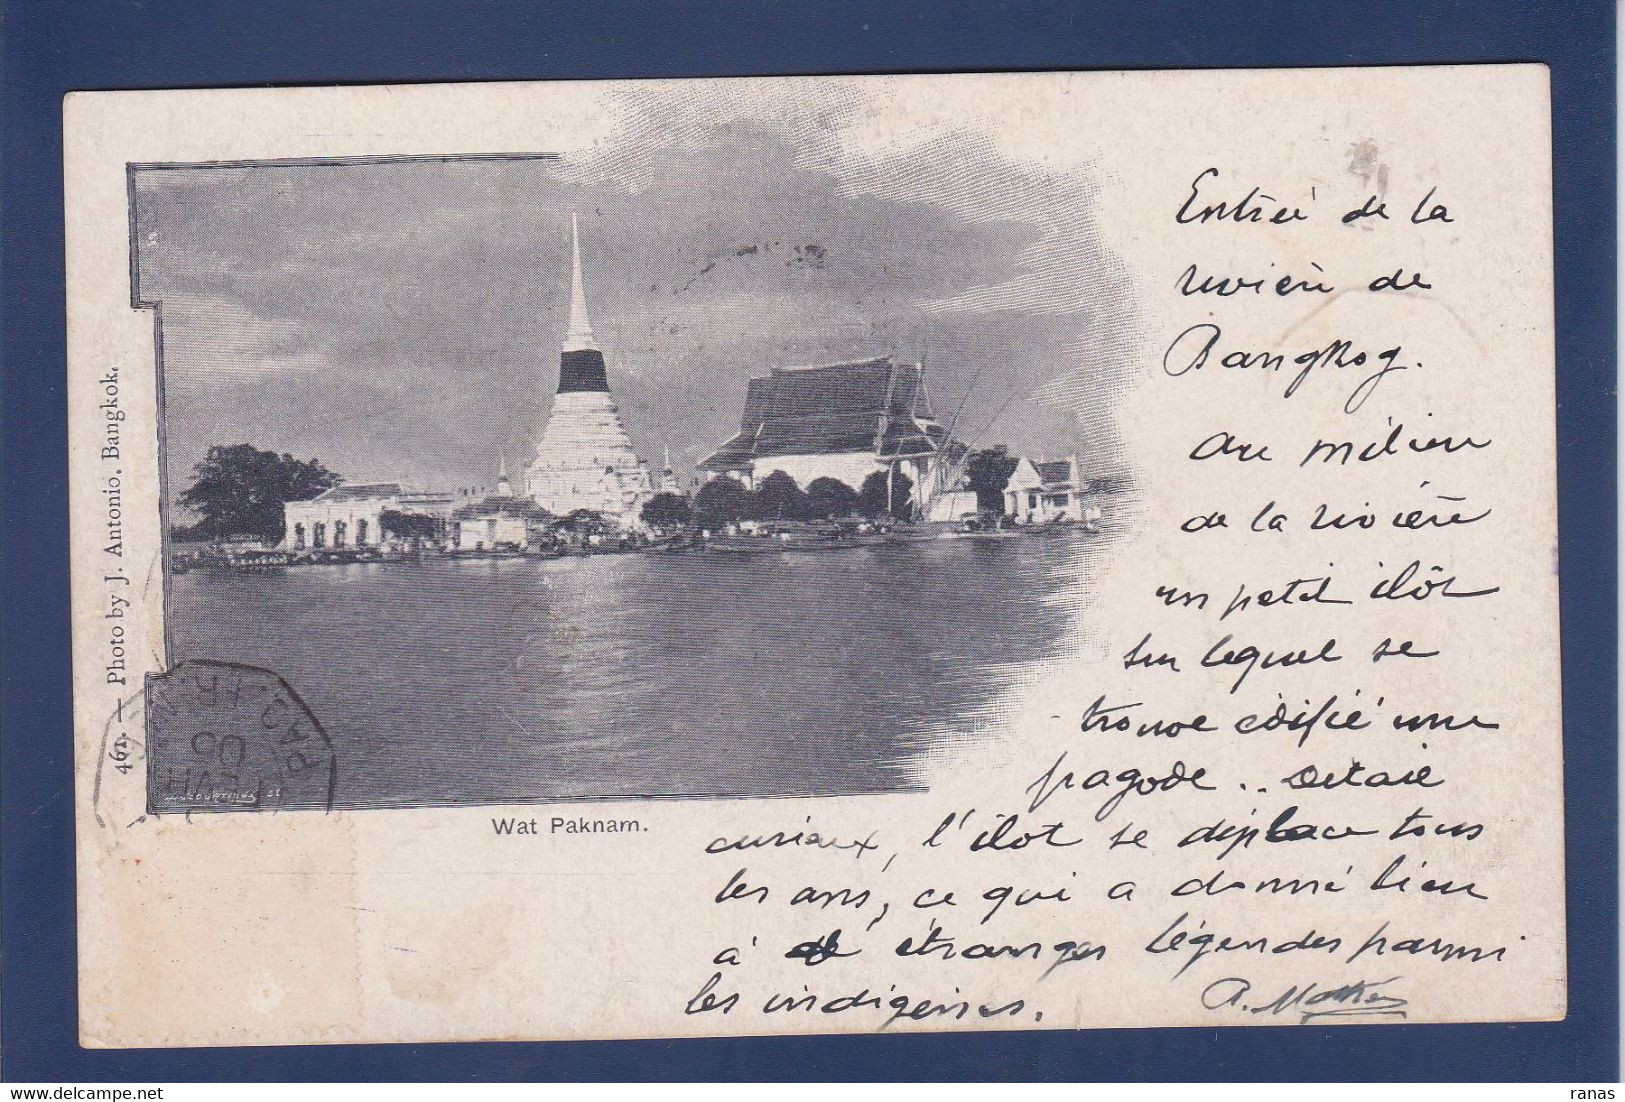 461. — Photo by J. Antonio. Bangkok.
Wat Paknam.
Entrée de la
rivière de
Bangkog.
Au milieu
de la rivière
un petit ilôt
sur lequel se
trouve édifié une
pagode .. Détail
curieux, l'ilot se déplace tous
les ans, ce qui a donné lieu
à d' étranges légendes parmi
les indigènes.
PAQ. FR.
05
ranas